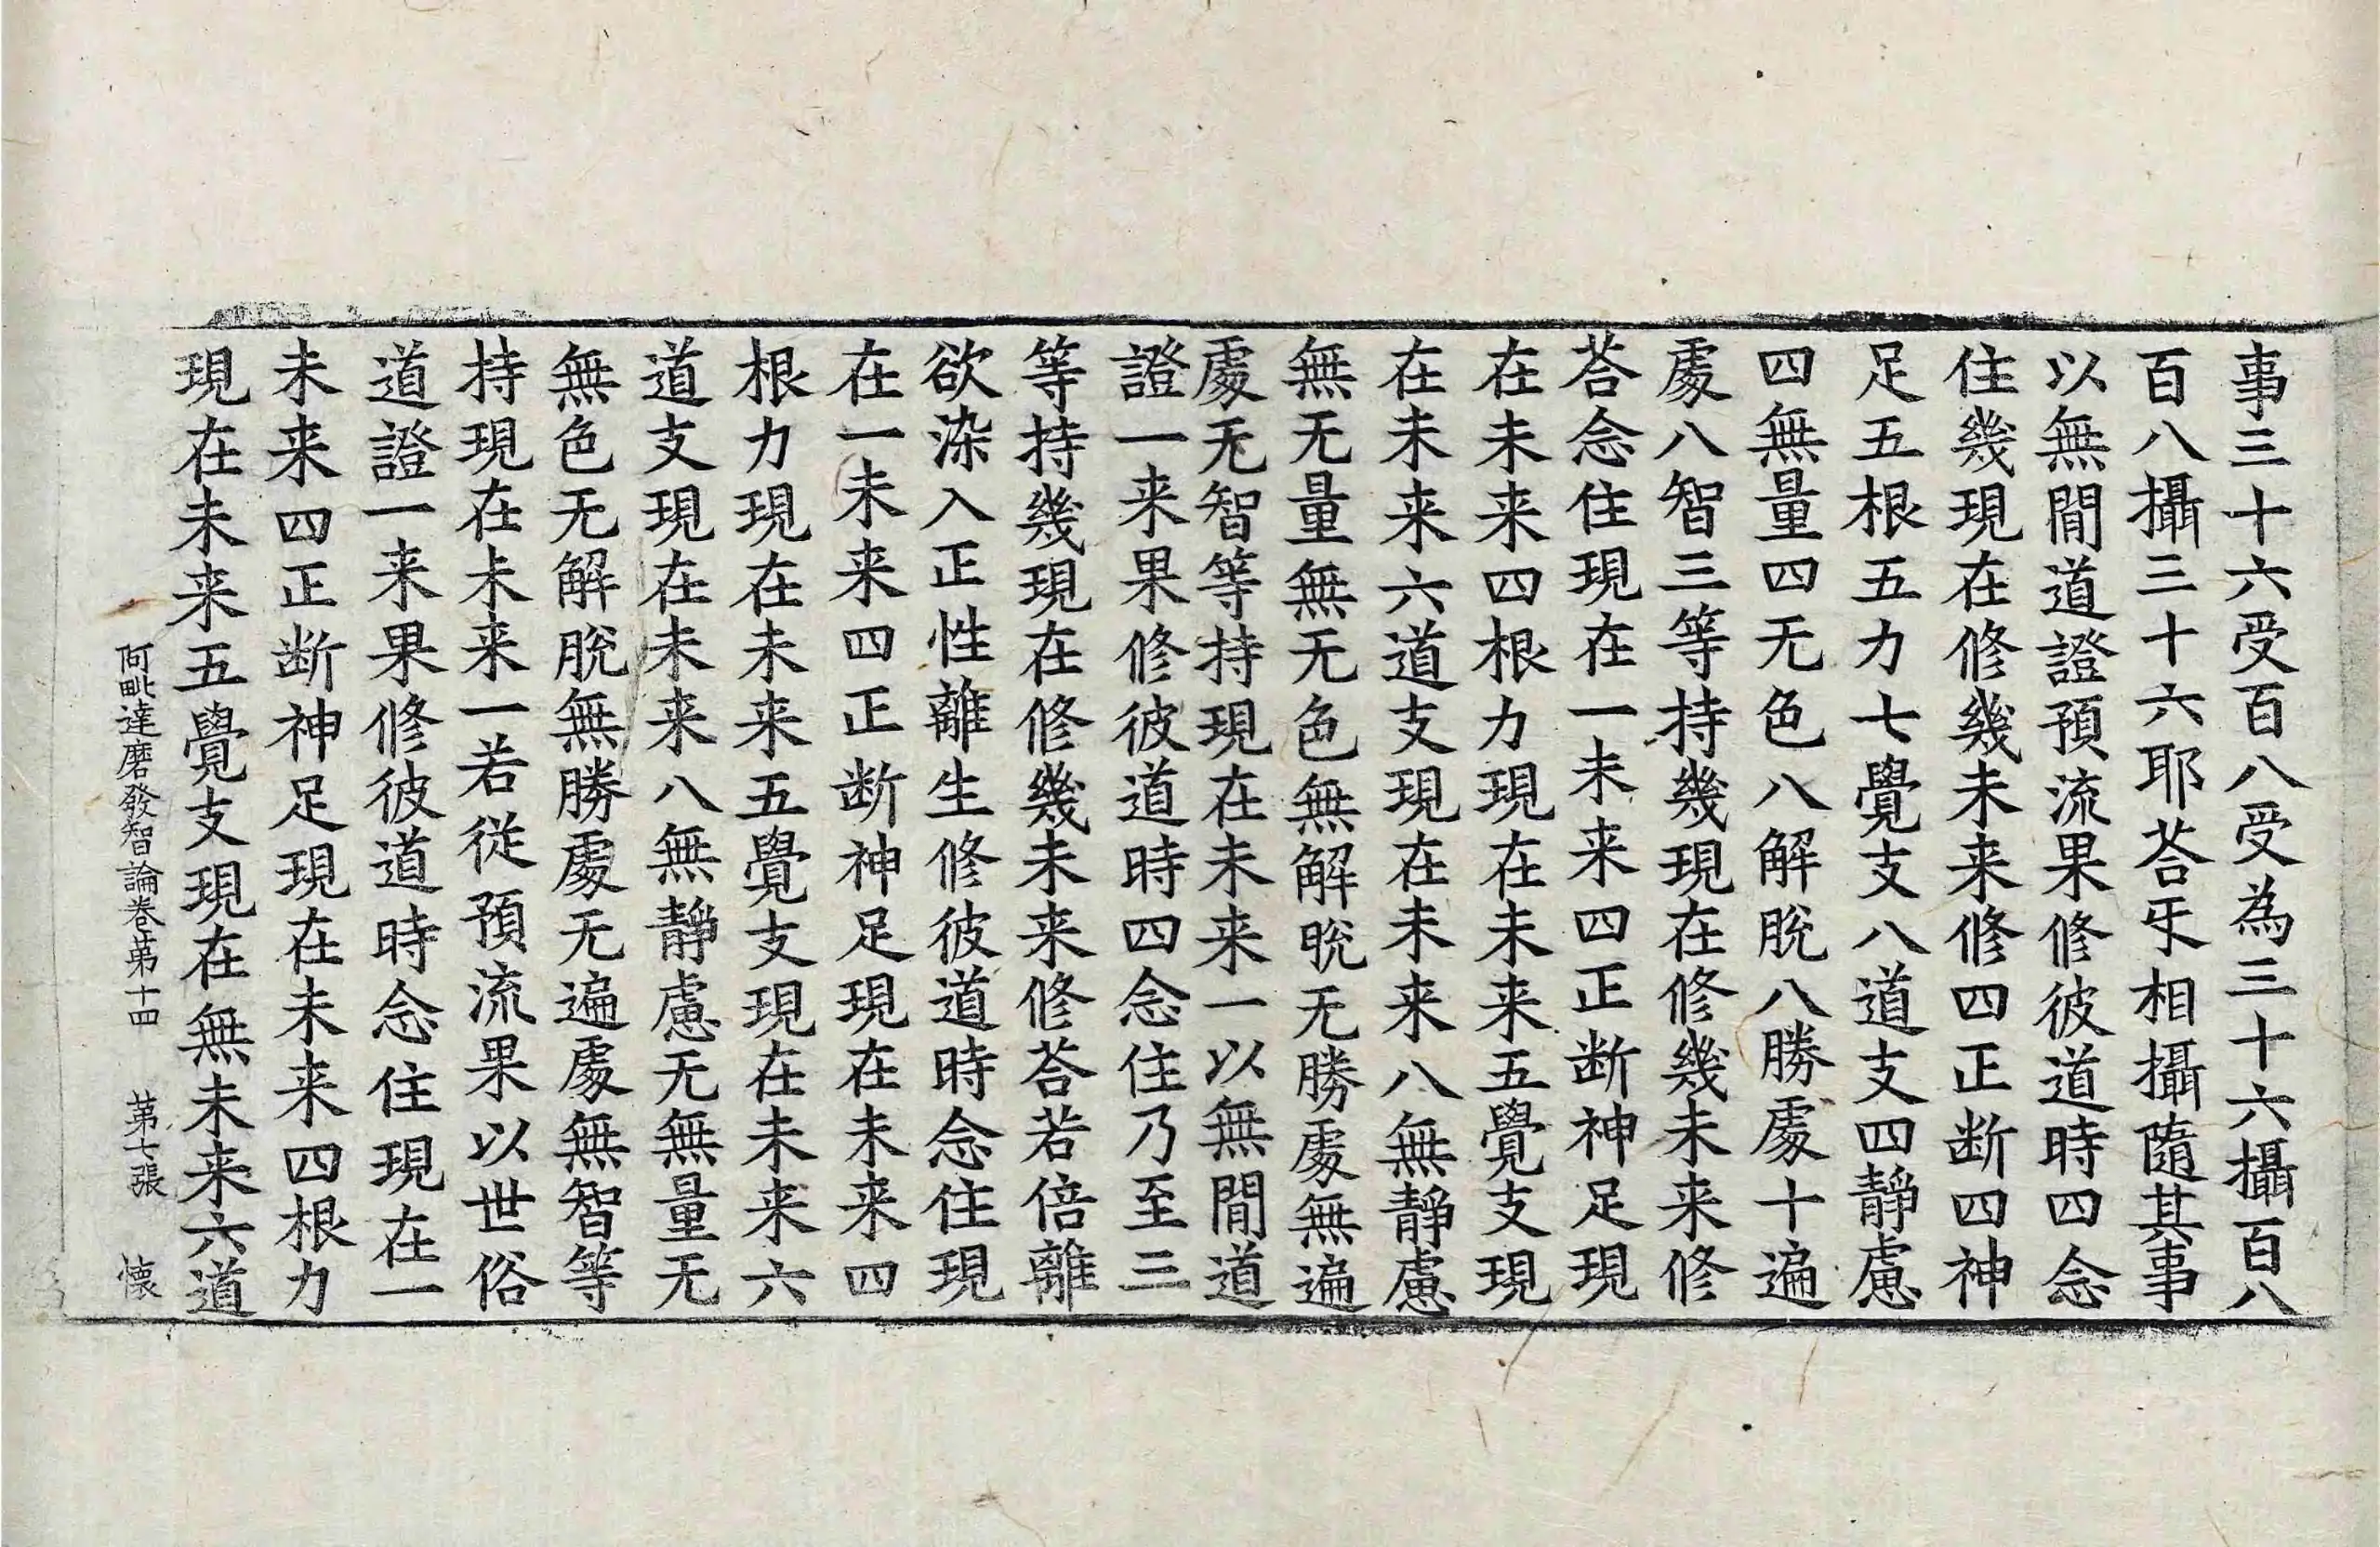 事三十六受百八受為三十六攝百八
百八攝三十六耶荅㸦相攝隨其事
以無閒道證預流果修彼道時四念
住幾現在修幾未来修四正断四神
足五根五力七覺支八道支四靜慮
四無量四无色八解脫八勝處十遍
處八智三等持幾現在修幾未来修
荅念住現在一未来四正断神足現
在未来四根力現在未来五覺支現
在未来六道支現在未来八無靜慮
無无量無无色無解脫无勝處無遍
處无智等持現在未来一以無閒道
證一来果修彼道時四念住乃至三
等持幾現在修幾未来修荅若倍離
欲染入正性離生修彼道時念住現
在一未来四正断神足現在未来四
根力現在未来五覺支現在未来六
道支現在未来八無靜慮无無量无
無色无解脫無勝處无遍處無智等
持現在未来一若從預流果以世俗
道證一来果修彼道時念住現在一
未来四正断神足現在未来四根力
現在未来五覺支現在無未来六道
阿毗達磨發智論卷第十四 第七張 懷